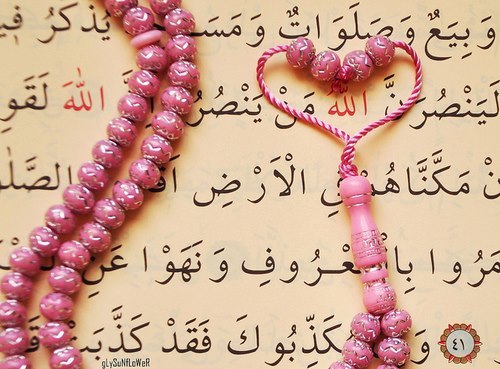 وَبِيَعٌ وَصَلَوَاتٌ وَمَسَـ يُذْكَرُ فِيـ
لَيَنْصُرَنَّ اللّٰهُ مَنْ يَنْصُرُ اللّٰهَ لَقَوِ
مَكَّنَّاهُمْ فِي الْاَرْضِ اَقَـ الصَّلٰو
ـمَرُوا بِالْمَعْرُوفِ وَنَهَوْا عَنِ
٤١ وَ ـكَذِّبُوكَ فَقَدْ كَذَّبَتْ قَـ
gLySuNfLoWeR